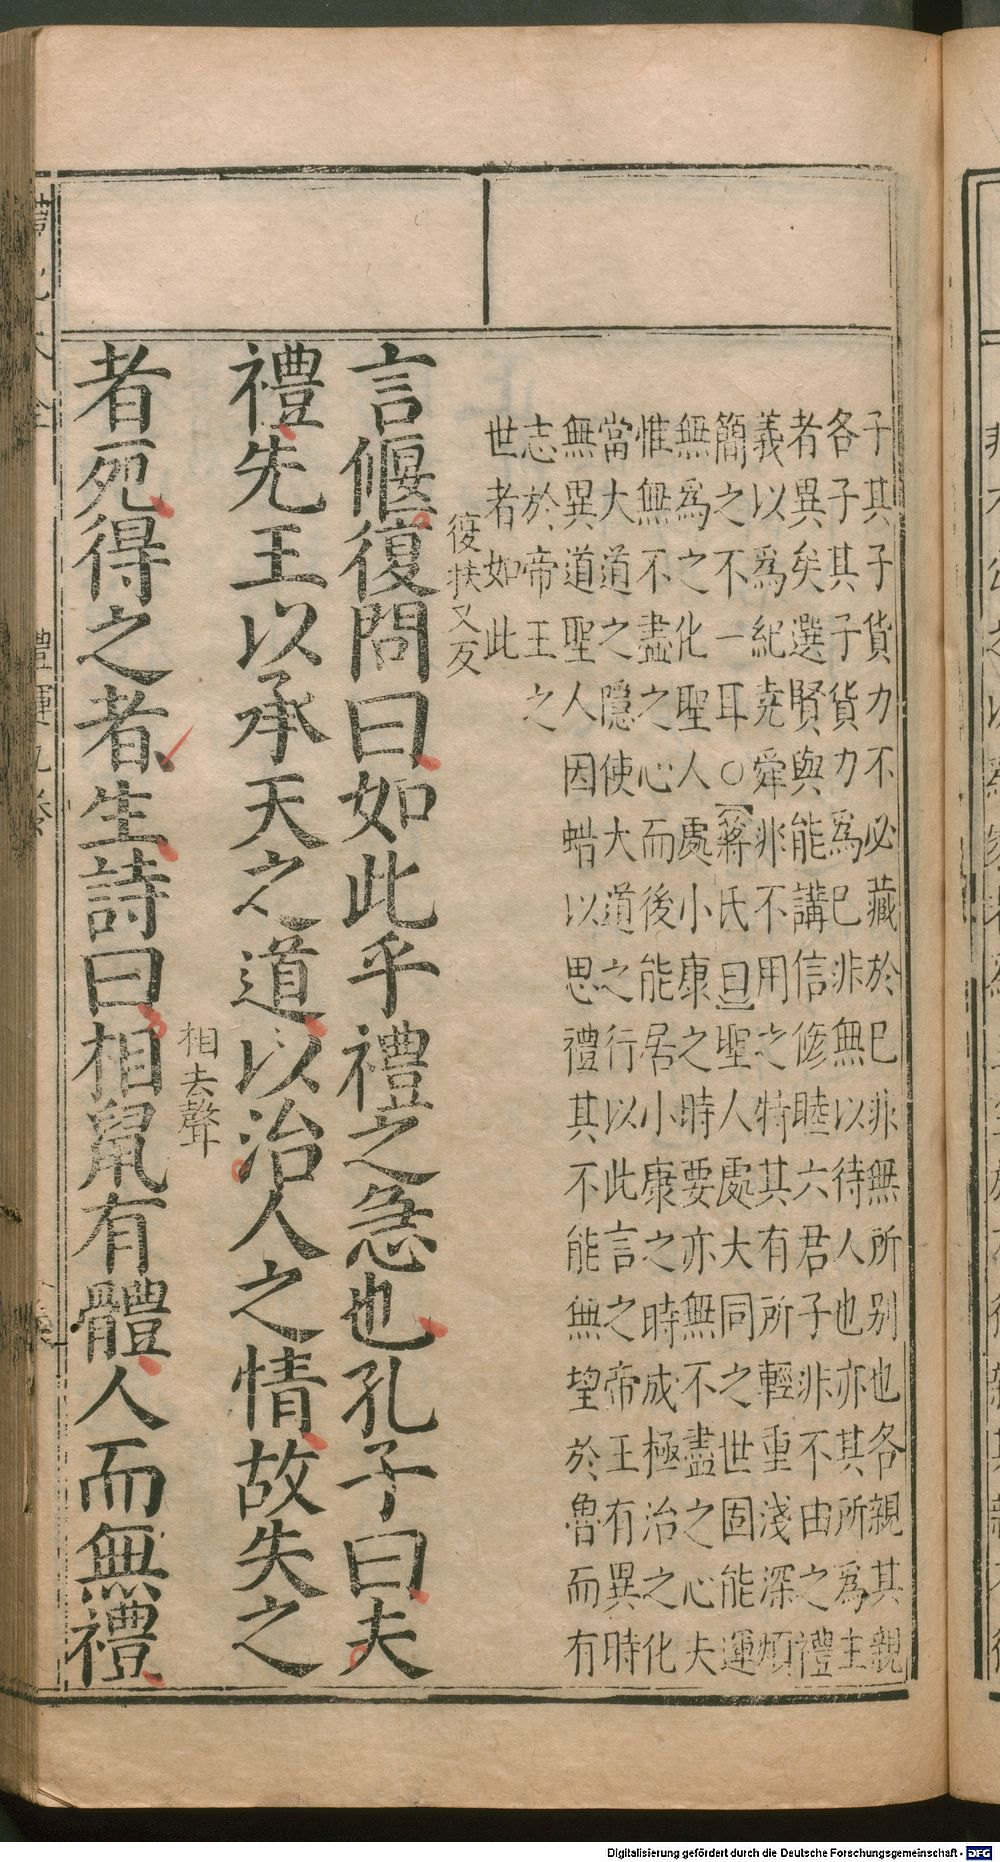 子其子貨力不必藏於已非無所别也各親其親
各子其子貨力爲已非無以待人也亦其所爲主
者異矣選賢與能講信修睦六君子非不由之禮
義以爲紀堯舜非不用之特其有所輕重淺深煩
簡之不一耳○蔣氏曰聖人處大同之世固能運
無爲之化聖人處小康之時要亦無不盡之心夫
惟無不盡之心而後能居小康之時成極治之化
當大道之隱使大道之行以此言之帝王有異時
無異道聖人因蜡以思禮其不能無望於魯而有
志於帝王之
世者如此
復扶又反
言偃復問曰如此乎禮之急也孔子曰夫
禮先王以承天之道以治人之情故失之
相去聲
者死得之者生詩曰相鼠有體人而無禮
禮運九卷
Digitalisierung gefördert durch die Deutsche Forschungsgemeinschaft - DFG